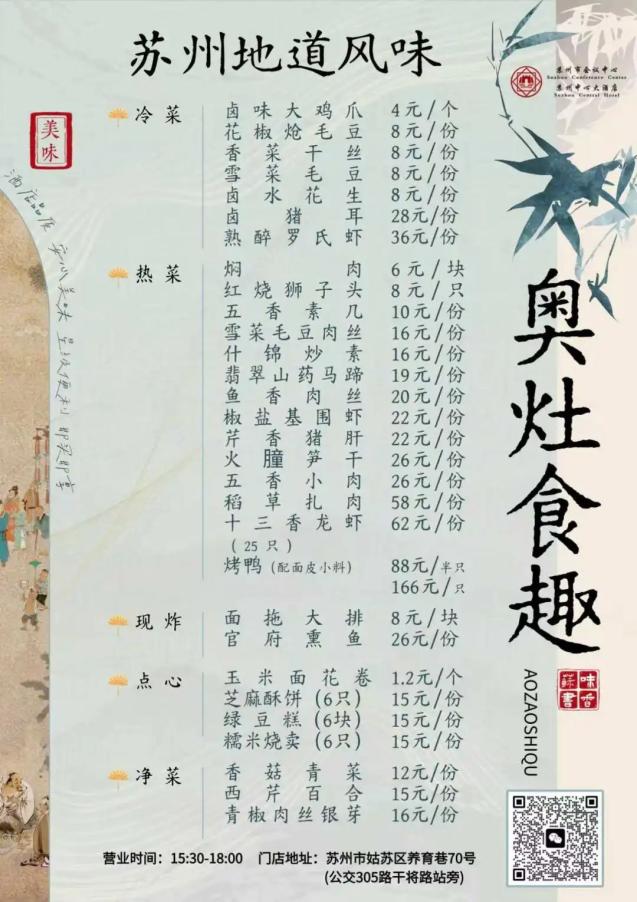 苏州地道风味
苏州市会议中心
Suzhou Conference Center
苏州中心大酒店
Suzhou Central Hotel
美味
冷菜
卤味大鸡爪 4元/个
花椒炝毛豆 8元/份
香菜干丝 8元/份
雪菜毛豆 8元/份
卤水花生 8元/份
卤猪耳 28元/份
熟醉罗氏虾 36元/份
热菜
焖肉 6元/块
红烧狮子头 8元/只
五香素几 10元/份
雪菜毛豆肉丝 16元/份
什锦炒素 16元/份
翡翠山药马蹄 19元/份
鱼香肉丝 20元/份
椒盐基围虾 22元/份
芹香猪肝 22元/份
火朣笋干 26元/份
五香小肉 26元/份
稻草扎肉 58元/份
十三香龙虾 62元/份
(25只)
烤鸭(配面皮小料) 88元/半只
166元/只
现炸
面拖大排 8元/块
官府熏鱼 26元/份
点心
玉米面花卷 1.2元/个
芝麻酥饼(6只) 15元/份
绿豆糕(6块) 15元/份
糯米烧卖(6只) 15元/份
净菜
香菇青菜 12元/份
西芹百合 15元/份
青椒肉丝银芽 16元/份
奥灶食趣
AOZAOSHIQU
营业时间：15:30-18:00 门店地址：苏州市姑苏区养育巷70号
(公交305路干将路站旁)